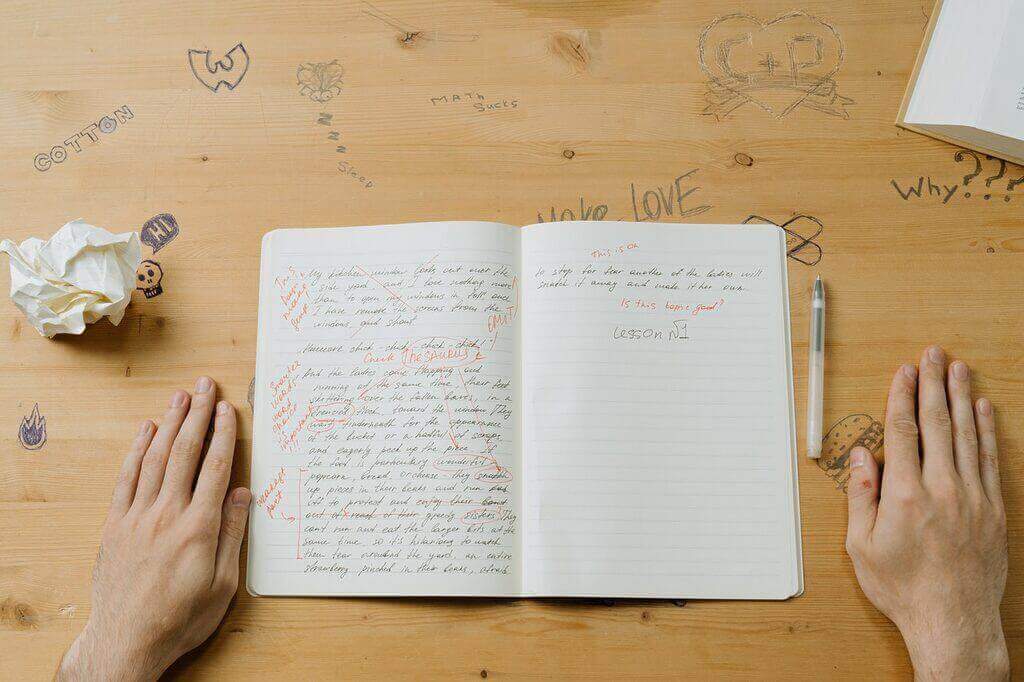 COTTON
W
Sleep
MATH
Sucks
C+P
Why???
HI
Make LOVE
My kitchen window looks out over the
side yard, and I love nothing more
than to open my windows in fall, once
I have remove the screens from the
windows, and shout
OMIT!
chick-chick-chick-chick!
Check THESAURUS
And the ladies come flapping and
running at the same time, their feet
over the fallen leaves, in a
flock, toward the window. They
wait underneath for the appearance
of the bucket or a handful of scraps,
and eagerly peck up the piece. If
the food is particulary wonderful
popcorn, bread, or cheese - they snatch
up pieces in their beaks and run
off to protect and enjoy their
out of reach of their greedy sisters. They
can't run and eat the larger bits at the
same time, so it's hilarious to watch
them tear around the yard, an entire
strawberry pinched in their beaks, afraid
Smarter
words
part
This is
to stop for fear another of the ladies will
snatch it away and make it her own.
Is this topic good?
LESSON №1